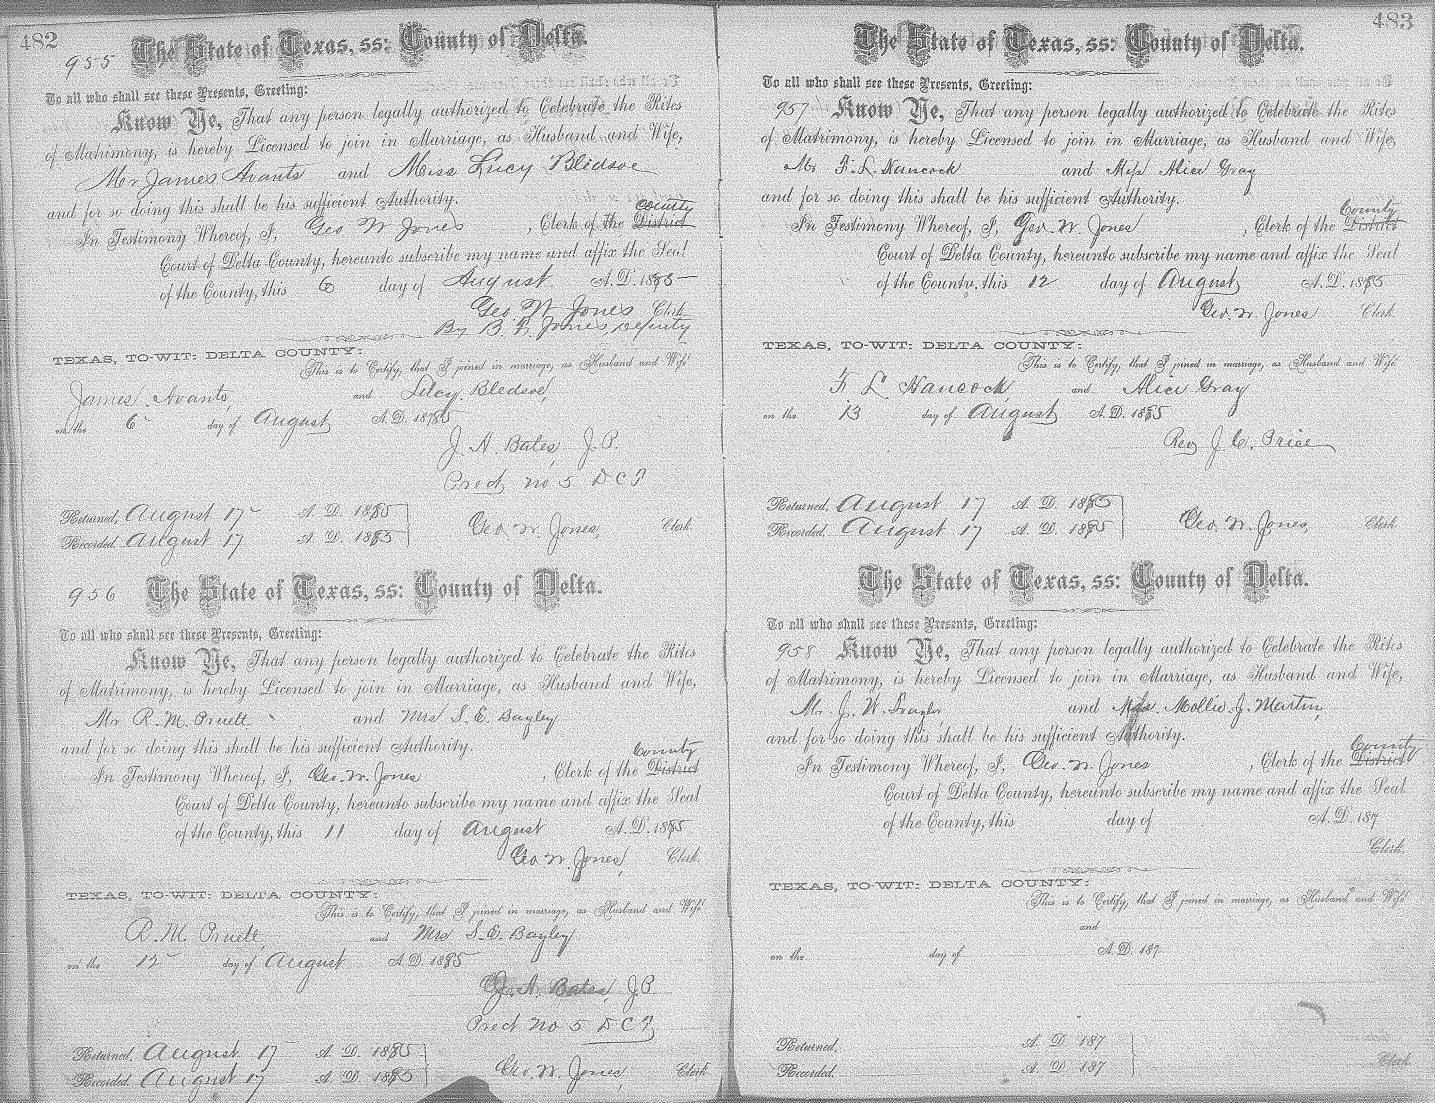 482
955 The State of Texas, ss: County of Delta.
To all who shall see these Presents, Greeting:
Know Ye, That any person legally authorized to Celebrate the Rites
of Matrimony, is hereby Licensed to join in Marriage, as Husband and Wife,
Mr James Avants and Miss Lucy Bledsoe
and for so doing this shall be his sufficient Authority.
County
In Testimony Whereof, I, Geo W Jones, Clerk of the District
Court of Delta County, hereunto subscribe my name and affix the Seal
of the County, this 6 day of August A.D. 1885
Geo W Jones Clerk
By B. F. Jones Deputy
TEXAS, TO-WIT: DELTA COUNTY:
This is to Certify, that I joined in marriage, as Husband and Wife
James Avants, and Lucy Bledsoe,
on the 6 day of August A.D. 1885
J. A. Bates, J.P.
Prect no 5 D C T
Returned, August 17 A. D. 1885
Recorded August 17 A. D. 1885
Geo. W. Jones, Clerk
956 The State of Texas, ss: County of Delta.
To all who shall see these Presents, Greeting:
Know Ye, That any person legally authorized to Celebrate the Rites
of Matrimony, is hereby Licensed to join in Marriage, as Husband and Wife,
Mr R. M. Pruett and Mrs S. E. Bayley
and for so doing this shall be his sufficient Authority.
County
In Testimony Whereof, I, Geo. W. Jones, Clerk of the District
Court of Delta County, hereunto subscribe my name and affix the Seal
of the County, this 11 day of August A.D. 1885
Geo. W. Jones, Clerk.
TEXAS, TO-WIT: DELTA COUNTY:
This is to Certify, that I joined in marriage, as Husband and Wife
R. M. Pruett, and Mrs S. E. Bayley
on the 12 day of August A.D. 1885
J. A. Bates, J.P.
Prect no 5 D C T
Returned, August 17 A. D. 1885
Recorded August 17 A. D. 1885
Geo. W. Jones, Clerk
483
The State of Texas, ss: County of Delta.
To all who shall see these Presents, Greeting:
957 Know Ye, That any person legally authorized to Celebrate the Rites
of Matrimony, is hereby Licensed to join in Marriage, as Husband and Wife,
Mr F. L. Hancock and Miss Alice Gray
and for so doing this shall be his sufficient Authority.
County
In Testimony Whereof, I, Geo. W. Jones, Clerk of the District
Court of Delta County, hereunto subscribe my name and affix the Seal
of the County, this 12 day of August A.D. 1885
Geo. W. Jones Clerk.
TEXAS, TO-WIT: DELTA COUNTY:
This is to Certify, that I joined in marriage, as Husband and Wife
F L Hancock, and Alice Gray
on the 13 day of August A.D. 1885
Rev J. C. Price
Returned, August 17 A. D. 1885
Recorded. August 17 A. D. 1885
Geo. W. Jones, Clerk
The State of Texas, ss: County of Delta.
To all who shall see these Presents, Greeting:
958 Know Ye, That any person legally authorized to Celebrate the Rites
of Matrimony, is hereby Licensed to join in Marriage, as Husband and Wife,
Mr. J. W. and Mollie J. Martin,
and for so doing this shall be his sufficient Authority.
County
In Testimony Whereof, I, Geo. W. Jones, Clerk of the District
Court of Delta County, hereunto subscribe my name and affix the Seal
of the County, this day of A.D. 187
Clerk.
TEXAS, TO-WIT: DELTA COUNTY:
This is to Certify, that I joined in marriage, as Husband and Wife
and
on the day of A.D. 187
Returned, A. D. 187
Recorded. A. D. 187
Clerk